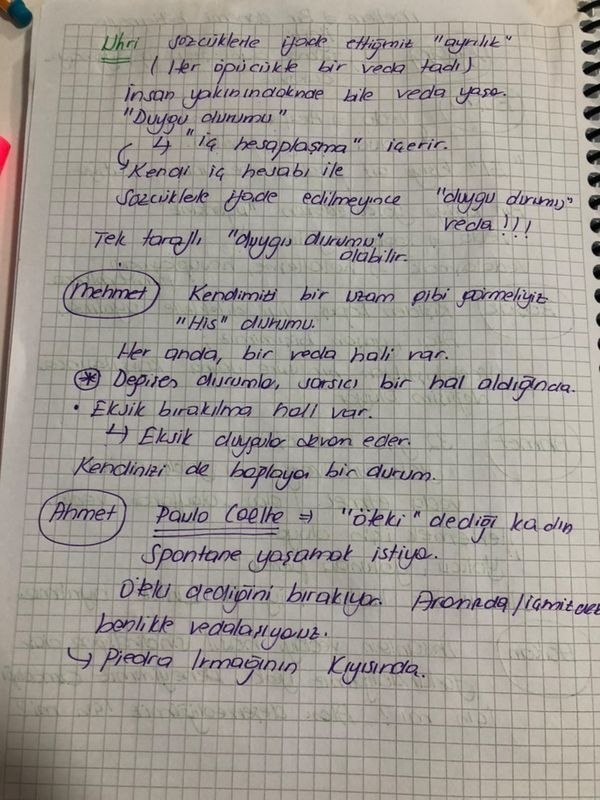 Uhri sözcüklerle ifade ettiğimiz "ayrılık"
(Her öpücükle bir veda tadı)
İnsan yakınındakinde bile veda yaşar.
"Duygu durumu"
↳ "iç hesaplaşma" içerir.
↳ Kendi iç hesabı ile
Sözcüklerle ifade edilmeyince "duygu durumu"
veda!!!
Tek taraflı "duygu durumu"
olabilir.
Mehmet Kendimizi bir uzam gibi görmeliyiz
"His" durumu.
Her anda, bir veda hali var.
* Değişen durumlar, sarsıcı bir hal aldığında.
• Eksik bırakılma hali var.
↳ Eksik duygular devam eder.
Kendinizi de bağlayan bir durum.
Ahmet Paulo Coelho ⇒ "öteki" dediği kadın
Spontane yaşamak istiyor.
Öteki dediğini bırakıyor. Aramızda/içimizdeki
benlikle vedalaşıyoruz.
↳ Piedra Irmağının Kıyısında.